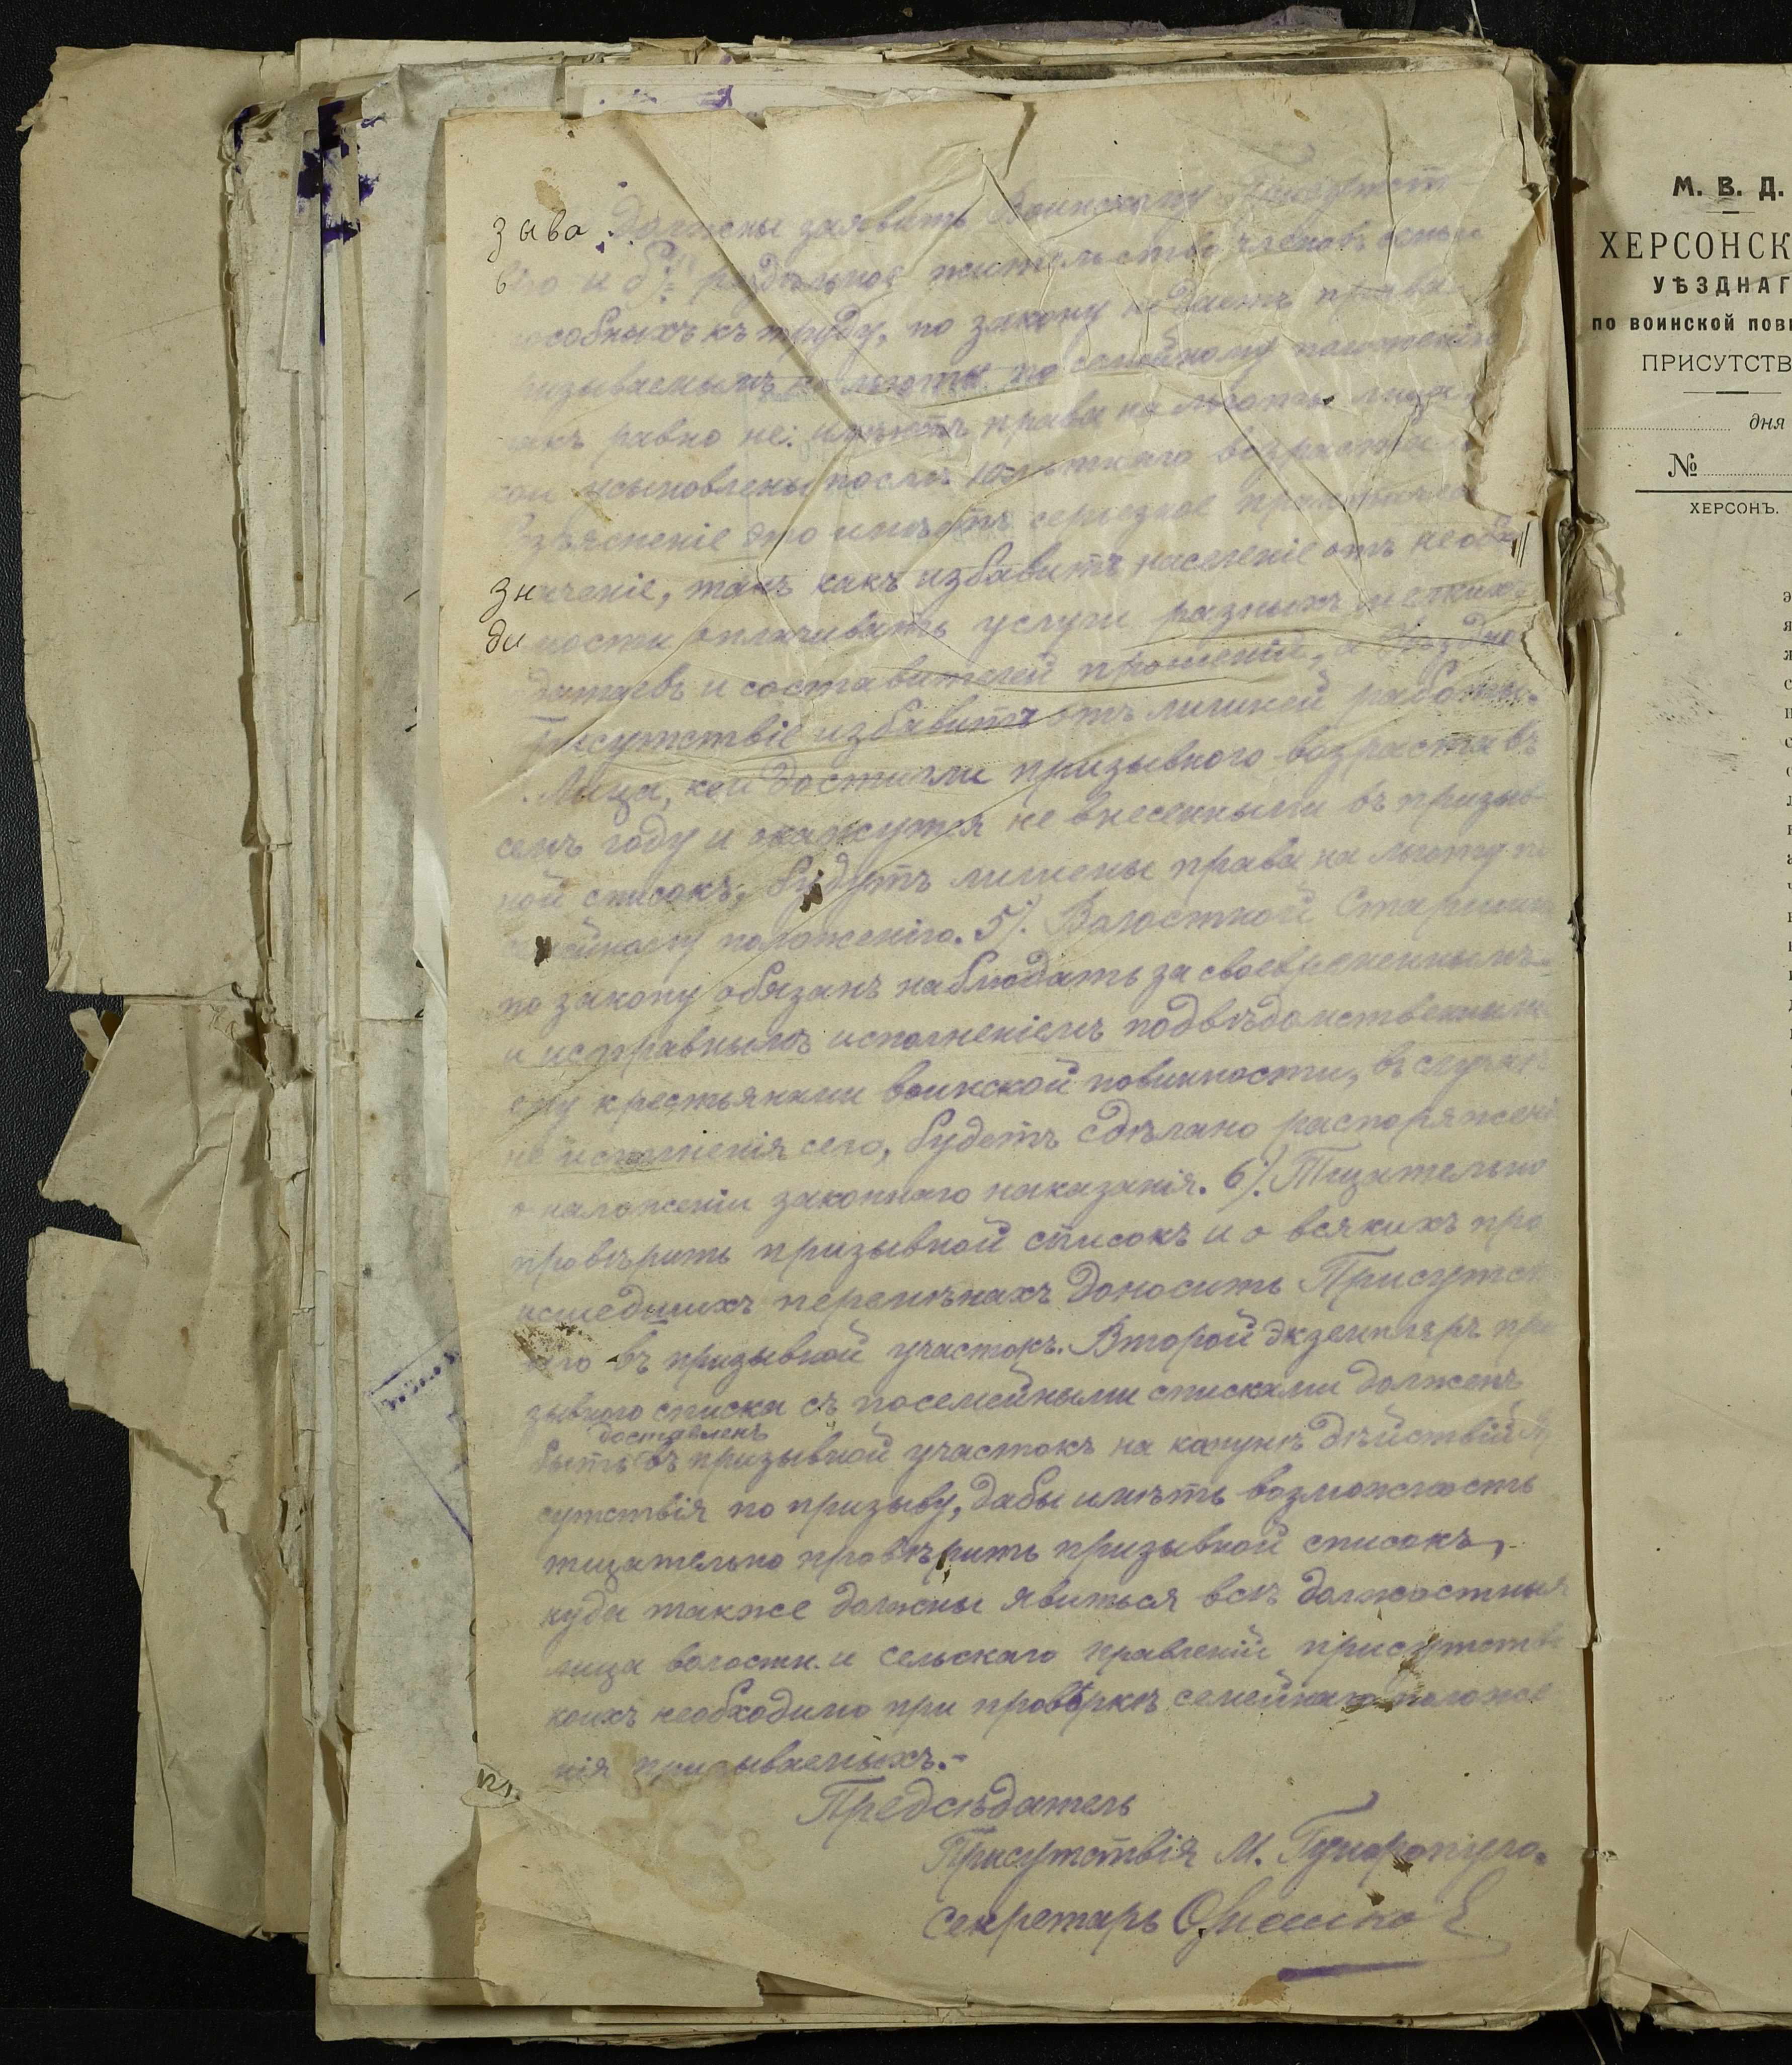 зыва должны заявить Воинскому Присутст
вію и б/: раздѣльное жительство членовъ семьи
особныхъ къ труду, по закону не даетъ права
призываемымъ на льготы по семейному положенію
акъ равно не: имѣютъ права на льготы лица,
кои усыновлены послѣ 10 лѣтняго возраста
Разъясненіе это имѣетъ серьезное практическ
значеніе, такъ какъ избавитъ населеніе отъ необхо
димости оплачивать услуги разныхъ мелкихъ
датаевъ и составителей прошеній, а Уѣздное
Присутствіе избавитъ отъ лишней работы.
Лица, кои достигли призывного возраста въ
семъ году и окажутся не внесенными въ призыв
ной списокъ, будутъ лишены права на льготу по
семейному положенію. 5/. Волостной Старшина
по закону обязанъ наблюдать за своевременнымъ
и исправнымъ исполненіемъ подвѣдомственными
ему крестьянами воинской повинности, въ случаѣ
не исполненія сего, будетъ сдѣлано распоряжені
о наложеніи законнаго наказанія. 6/. Тщательно
провѣрить призывной списокъ и о всякихъ про
исшедшихъ перемѣнахъ доносить Присутст
вію въ призывной участокъ. Второй экземпляръ при
зывного списка съ посемейными списками долженъ
доставленъ
быть въ призывной участокъ на канунѣ дѣйствій П
сутствія по призыву, дабы имѣть возможность
тщательно провѣрить призывной списокъ,
куда также должны явиться всѣ должостныя
лица волостн. и сельскаго правленій присутств
коихъ необходимо при провѣркѣ семейнаго положе
нія призываемыхъ.-
Предсѣдатель
Присутствія М.
Секретарь
М. В. Д.
ХЕРСОНСК
УѢЗДНАГ
ПО ВОИНСКОЙ ПОВИ
ПРИСУТСТВ
дня
№
ХЕРСОНЪ.